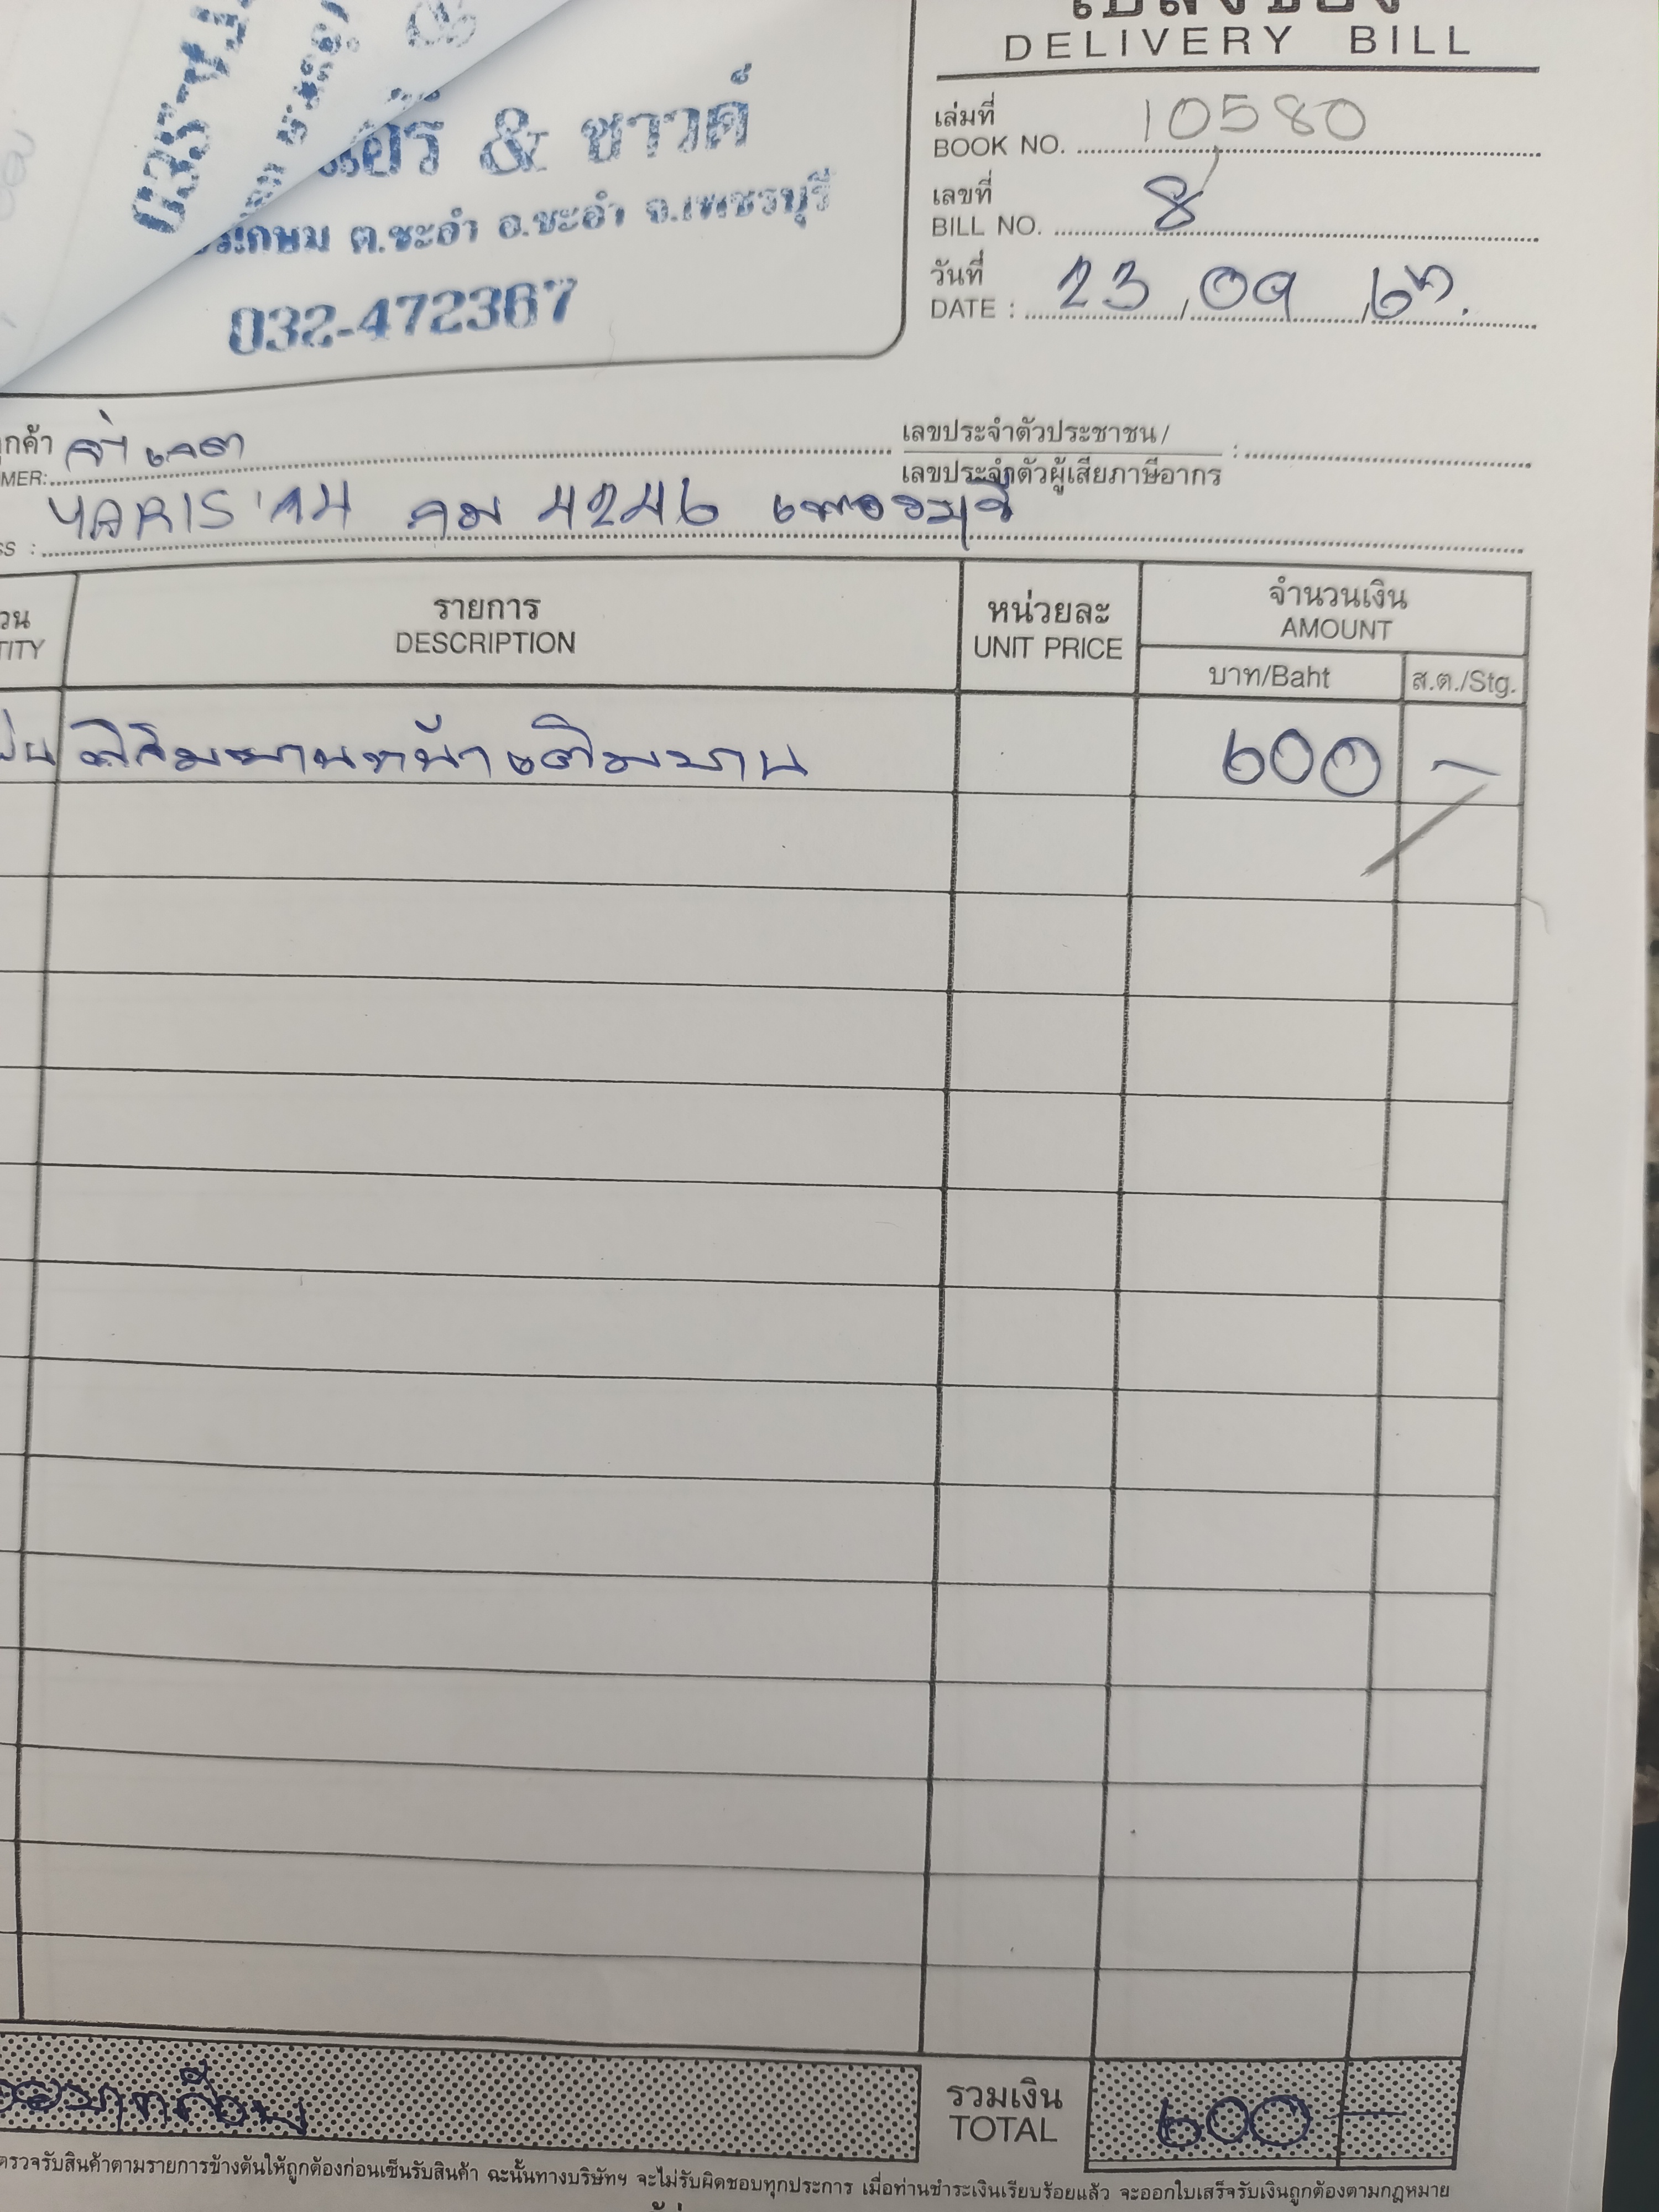 DELIVERY BILL
& ซาวด์
ต.ชะอำ อ.ชะอำ จ.เพชรบุรี
032-472367
เล่มที่
BOOK NO. 10580
เลขที่
BILL NO. 8
วันที่
DATE : 23 / 09 /
เลขประจำตัวประชาชน/
เลขประจำตัวผู้เสียภาษีอากร :
YARIS '14 4246 เพชรบุรี
รายการ
DESCRIPTION
หน่วยละ
UNIT PRICE
จำนวนเงิน
AMOUNT
บาท/Baht
ส.ต./Stg.
ฟิล์มบานหน้าเต็มบาน 600 -
รวมเงิน
TOTAL
600 -
ตรวจรับสินค้าตามรายการข้างต้นให้ถูกต้องก่อนเซ็นรับสินค้า ฉะนั้นทางบริษัทฯ จะไม่รับผิดชอบทุกประการ เมื่อท่านชำระเงินเรียบร้อยแล้ว จะออกใบเสร็จรับเงินถูกต้องตามกฎหมาย